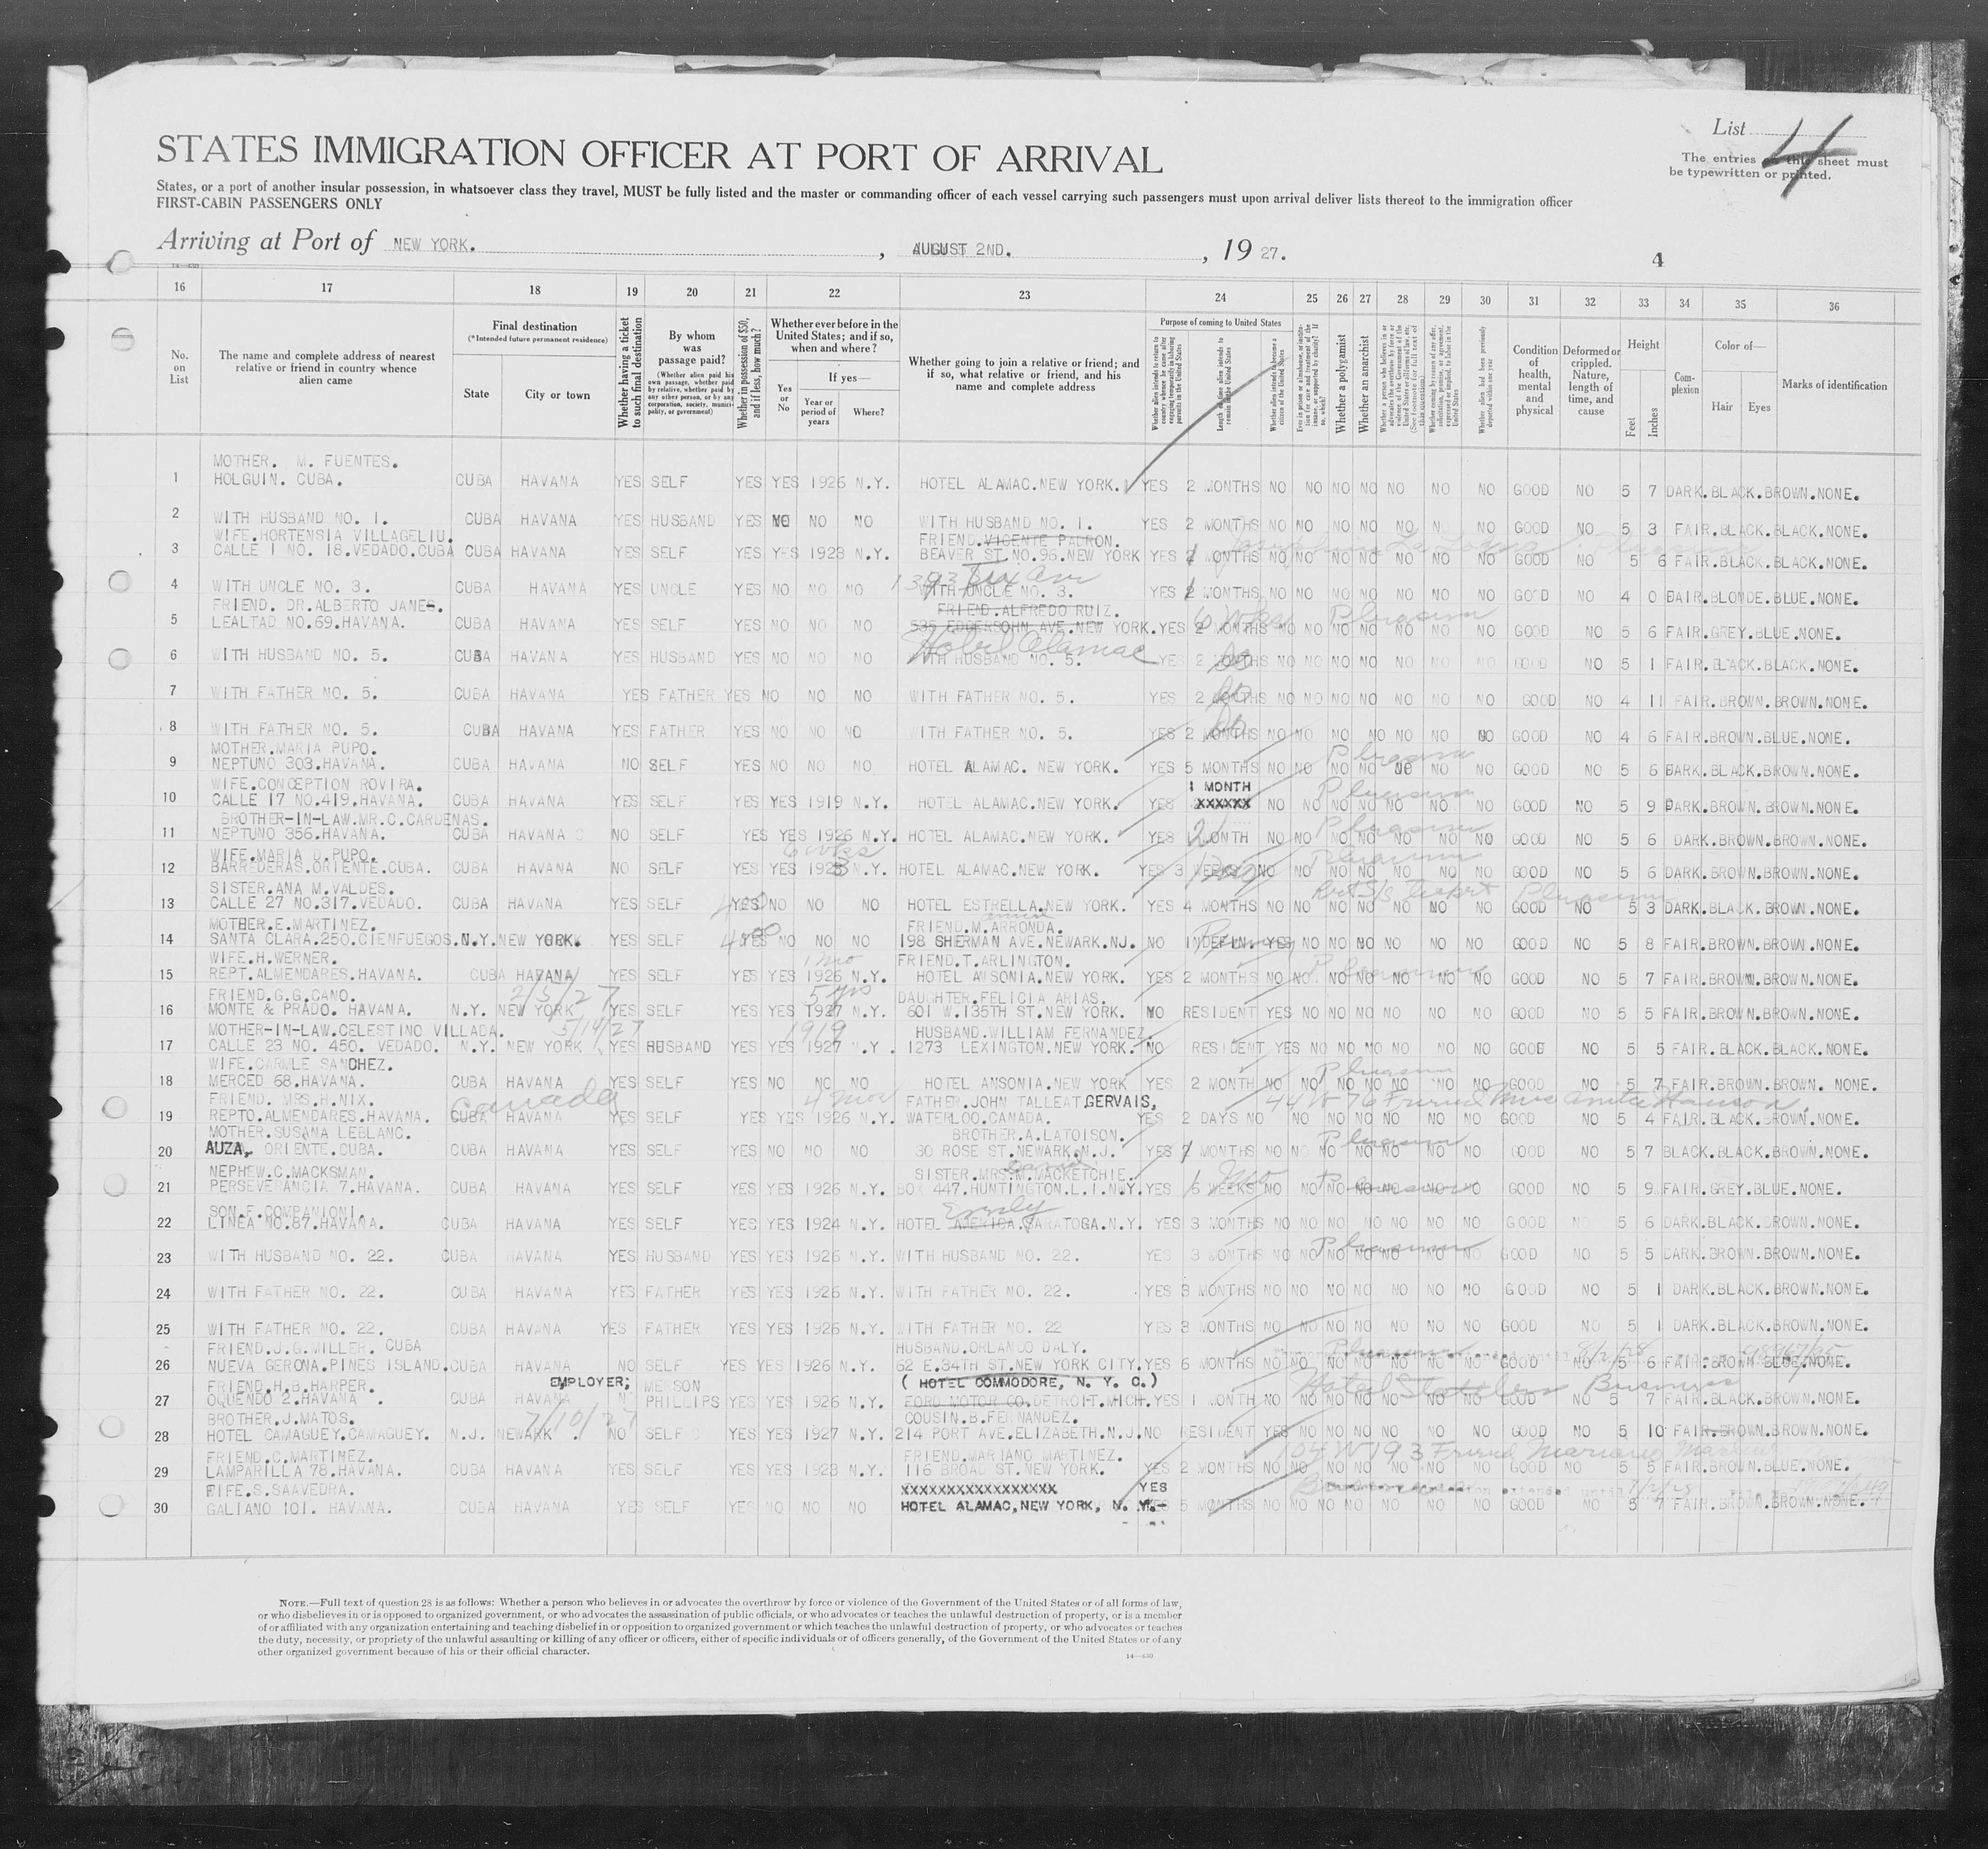 List 4
STATES IMMIGRATION OFFICER AT PORT OF ARRIVAL
The entries on this sheet must
be typewritten or printed.
States, or a port of another insular possession, in whatsoever class they travel, MUST be fully listed and the master or commanding officer of each vessel carrying such passengers must upon arrival deliver lists thereof to the immigration officer
FIRST-CABIN PASSENGERS ONLY
Arriving at Port of NEW YORK. , AUGUST 2ND. , 19 27.
4
16 17 18 19 20 21 22 23 24 25 26 27 28 29 30 31 32 33 34 35 36
No. on List
The name and complete address of nearest relative or friend in country whence alien came
Final destination (*Intended future permanent residence)
State
City or town
Whether having a ticket to such final destination
By whom was passage paid?
(Whether alien paid his own passage, whether paid by relative, whether paid by any other person, or by any corporation, society, municipality, or government)
Whether in possession of $50, and if less, how much?
Whether ever before in the United States; and if so, when and where?
Yes or No
If yes—
Year or period of years
Where?
Whether going to join a relative or friend; and if so, what relative or friend, and his name and complete address
Purpose of coming to United States
Whether alien intends to return to country whence he came after engaging temporarily in laboring pursuits in the United States
Length of time alien intends to remain in the United States
Whether alien intends to become a citizen of the United States
Whether a polygamist
Whether an anarchist
Whether alien had been previously deported within one year
Condition of health, mental and physical
Deformed or crippled. Nature, length of time, and cause
Height
Feet
Inches
Complexion
Color of—
Hair
Eyes
Marks of identification
MOTHER. M. FUENTES.
1 HOLGUIN. CUBA. CUBA HAVANA YES SELF YES YES 1926 N.Y. HOTEL ALAMAC.NEW YORK. YES 2 MONTHS NO NO NO NO NO NO NO GOOD NO 5 7 DARK.BLACK.BROWN.NONE.
2 WITH HUSBAND NO. 1. CUBA HAVANA YES HUSBAND YES NO NO NO WITH HUSBAND NO. 1. YES 2 MONTHS NO NO NO NO NO NO NO GOOD NO 5 3 FAIR.BLACK.BLACK.NONE.
WIFE.HORTENSIA VILLAGELIU. FRIEND.VICENTE PADRON.
3 CALLE I NO. 18.VEDADO.CUBA CUBA HAVANA YES SELF YES YES 1923 N.Y. BEAVER ST.NO.96.NEW YORK YES MONTHS NO NO NO NO NO NO NO GOOD NO 5 6 FAIR.BLACK.BLACK.NONE.
4 WITH UNCLE NO. 3. CUBA HAVANA YES UNCLE YES NO NO NO WITH UNCLE NO. 3. YES MONTHS NO NO NO NO NO NO NO GOOD NO 4 0 FAIR.BLONDE.BLUE.NONE.
FRIEND. DR.ALBERTO JANES. FRIEND.ALFREDO RUIZ.
5 LEALTAD NO.69.HAVANA. CUBA HAVANA YES SELF YES NO NO NO 535 EDGERSOHN AVE.NEW YORK. YES 2 MONTHS NO NO NO NO NO NO NO GOOD NO 5 6 FAIR.GREY.BLUE.NONE.
6 wks Pleasure
Hotel Alamac
6 WITH HUSBAND NO. 5. CUBA HAVANA YES HUSBAND YES NO NO NO WITH HUSBAND NO. 5. YES 2 MONTHS NO NO NO NO NO NO NO GOOD NO 5 1 FAIR.BLACK.BLACK.NONE.
7 WITH FATHER NO. 5. CUBA HAVANA YES FATHER YES NO NO NO WITH FATHER NO. 5. YES 2 MONTHS NO NO NO NO NO NO NO GOOD NO 4 11 FAIR.BROWN.BROWN.NONE.
8 WITH FATHER NO. 5. CUBA HAVANA YES FATHER YES NO NO NO WITH FATHER NO. 5. YES 2 MONTHS NO NO NO NO NO NO NO GOOD NO 4 6 FAIR.BROWN.BLUE.NONE.
MOTHER.MARIA PUPO. Pleasure
9 NEPTUNO 303.HAVANA. CUBA HAVANA NO SELF YES NO NO NO HOTEL ALAMAC. NEW YORK. YES 5 MONTHS NO NO NO NO NO NO NO GOOD NO 5 6 DARK.BLACK.BROWN.NONE.
WIFE.CONCEPTION ROVIRA. 1 MONTH Pleasure
10 CALLE 17 NO.419.HAVANA. CUBA HAVANA YES SELF YES YES 1919 N.Y. HOTEL ALAMAC.NEW YORK. YES XXXXXX NO NO NO NO NO NO NO GOOD NO 5 9 DARK.BROWN.BROWN.NONE.
BROTHER-IN-LAW.MR.C.CARDENAS. Pleasure
11 NEPTUNO 356.HAVANA. CUBA HAVANA NO SELF YES YES 1926 N.Y. HOTEL ALAMAC.NEW YORK. YES MONTH NO NO NO NO NO NO NO GOOD NO 5 6 DARK.BROWN.BROWN.NONE.
WIFE.MARIA D.PUPO. 6 wks Pleasure
12 BARREDERAS.ORIENTE.CUBA. CUBA HAVANA NO SELF YES YES 1923 N.Y. HOTEL ALAMAC.NEW YORK. YES 3 WEEKS NO NO NO NO NO NO NO GOOD NO 5 6 DARK.BROWN.BROWN.NONE.
SISTER.ANA M.VALDES. Pleasure
13 CALLE 27 NO.317.VEDADO. CUBA HAVANA YES SELF YES NO NO NO HOTEL ESTRELLA.NEW YORK. YES 4 MONTHS NO NO NO NO NO NO NO GOOD NO 5 3 DARK.BLACK.BROWN.NONE.
MOTHER.E.MARTINEZ. FRIEND.M.ARRONDA.
14 SANTA CLARA.250.CIENFUEGOS. N.Y. NEW YORK. YES SELF YES NO NO NO 198 SHERMAN AVE.NEWARK.NJ. NO INDEFIN. YES NO NO NO NO NO NO GOOD NO 5 8 FAIR.BROWN.BROWN.NONE.
WIFE.H.WERNER. 1 mo FRIEND.T.ARLINGTON. Pleasure
15 REPT.ALMENDARES.HAVANA. CUBA HAVANA YES SELF YES YES 1926 N.Y. HOTEL ANSONIA.NEW YORK. YES 2 MONTHS NO NO NO NO NO NO NO GOOD NO 5 7 FAIR.BROWN.BROWN.NONE.
FRIEND.G.G.CANO. 2/3/27 5 yrs DAUGHTER.FELICIA ARIAS.
16 MONTE & PRADO. HAVANA. N.Y. NEW YORK YES SELF YES YES 1927 N.Y. 601 W.135TH ST.NEW YORK. NO RESIDENT YES NO NO NO NO NO NO GOOD NO 5 5 FAIR.BROWN.BROWN.NONE.
MOTHER-IN-LAW.CELESTINO VILLADA. 5/14/27 1919 HUSBAND.WILLIAM FERNANDEZ.
17 CALLE 23 NO. 450. VEDADO. N.Y. NEW YORK YES HUSBAND YES YES 1927 N.Y. 1273 LEXINGTON.NEW YORK. NO RESIDENT YES NO NO NO NO NO NO GOOD NO 5 5 FAIR.BLACK.BLACK.NONE.
WIFE.CARMLE SANCHEZ. Pleasure
18 MERCED 68.HAVANA. CUBA HAVANA YES SELF YES NO NO NO HOTEL ANSONIA.NEW YORK YES 2 MONTH NO NO NO NO NO NO NO GOOD NO 5 7 FAIR.BROWN.BROWN. NONE.
FRIEND. MRS.H.NIX. Canada FATHER.JOHN TALLEAT GERVAIS, 44 W 76 Friend Miss Anita Hanson
19 REPTO.ALMENDARES.HAVANA. CUBA HAVANA YES SELF YES YES 1926 N.Y. WATERLOO.CANADA. YES 2 DAYS NO NO NO NO NO NO NO GOOD NO 5 4 FAIR.BLACK.BROWN.NONE.
MOTHER.SUSANA LEBLANC. BROTHER.A.LATOISON. Pleasure
20 AUZA, ORIENTE.CUBA. CUBA HAVANA YES SELF YES NO NO NO 30 ROSE ST.NEWARK N.J. YES MONTHS NO NO NO NO NO NO NO GOOD NO 5 7 BLACK.BLACK.BROWN.NONE.
NEPHEW.C.MACKSMAN. SISTER.MRS.M.MACKETCHIE.
21 PERSEVERANCIA 7.HAVANA. CUBA HAVANA YES SELF YES YES 1926 N.Y. BOX 447.HUNTINGTON.L.I.N.Y. YES 6 WEEKS NO NO NO NO NO NO NO GOOD NO 5 9 FAIR.GREY.BLUE.NONE.
SON.F.COMPANIONI.
22 LINEA NO.87.HAVANA. CUBA HAVANA YES SELF YES YES 1924 N.Y. HOTEL AMERICA.SARATOGA.N.Y. YES 3 MONTHS NO NO NO NO NO NO NO GOOD NO 5 6 DARK.BLACK.BROWN.NONE.
Pleasure
23 WITH HUSBAND NO. 22. CUBA HAVANA YES HUSBAND YES YES 1926 N.Y. WITH HUSBAND NO. 22. YES 3 MONTHS NO NO NO NO NO NO NO GOOD NO 5 5 DARK.BROWN.BROWN.NONE.
24 WITH FATHER NO. 22. CUBA HAVANA YES FATHER YES YES 1926 N.Y. WITH FATHER NO. 22. YES 3 MONTHS NO NO NO NO NO NO NO GOOD NO 5 1 DARK.BLACK.BROWN.NONE.
25 WITH FATHER NO. 22. CUBA HAVANA YES FATHER YES YES 1926 N.Y. WITH FATHER NO. 22 YES 3 MONTHS NO NO NO NO NO NO NO GOOD NO 5 1 DARK.BLACK.BROWN.NONE.
FRIEND.J.G.MILLER. CUBA HUSBAND.ORLANDO DALY. Pleasure
26 NUEVA GERONA.PINES ISLAND. CUBA HAVANA NO SELF YES YES 1926 N.Y. 62 E.34TH ST.NEW YORK CITY. YES 6 MONTHS NO NO NO NO NO NO NO GOOD NO 5 6 FAIR.BROWN BLUE.NONE.
FRIEND.H.B.HARPER. EMPLOYER; MERSON ( HOTEL COMMODORE, N. Y. C.) Hotel Statler Business
27 OQUENDO 2.HAVANA. CUBA HAVANA NO PHILLIPS YES YES 1926 N.Y. FORD MOTOR CO.DETROIT.MICH. YES 1 MONTH NO NO NO NO NO NO NO GOOD NO 5 7 FAIR.BLACK.BROWN.NONE.
BROTHER.J.MATOS. COUSIN.B.FERNANDEZ.
28 HOTEL CAMAGUEY.CAMAGUEY. N.J. NEWARK. NO SELF YES YES 1927 N.Y. 214 PORT AVE.ELIZABETH.N.J. NO RESIDENT YES NO NO NO NO NO NO GOOD NO 5 10 FAIR.BROWN.BROWN.NONE.
FRIEND.C.MARTINEZ. FRIEND.MARIANO MARTINEZ. 104 W 193 Friend Mariano Martinez
29 LAMPARILLA 78.HAVANA. CUBA HAVANA YES SELF YES YES 1923 N.Y. 116 BROAD ST.NEW YORK. YES 2 MONTHS NO NO NO NO NO NO NO GOOD NO 5 5 FAIR.BROWN.BLUE.NONE.
WIFE.S.SAAVEDRA. XXXXXXXXXXXXXXXXX YES
30 GALIANO 101. HAVANA. CUBA HAVANA YES SELF YES NO NO NO HOTEL ALAMAC,NEW YORK, N. Y.- YES 5 MONTHS NO NO NO NO NO NO NO GOOD NO 5 7 FAIR.BROWN.BROWN.NONE.
NOTE.—Full text of question 28 is as follows: Whether a person who believes in or advocates the overthrow by force or violence of the Government of the United States or of all forms of law,
or who disbelieves in or is opposed to organized government, or who advocates the assassination of public officials, or who advocates or teaches the unlawful destruction of property, or is a member
of or affiliated with any organization entertaining and teaching disbelief in or opposition to organized government or which teaches the unlawful destruction of property, or who advocates or teaches
the duty, necessity, or propriety of the unlawful assaulting or killing of any officer or officers, either of specific individuals or of officers generally, of the Government of the United States or of any
other organized government because of his or their official character.
14—430